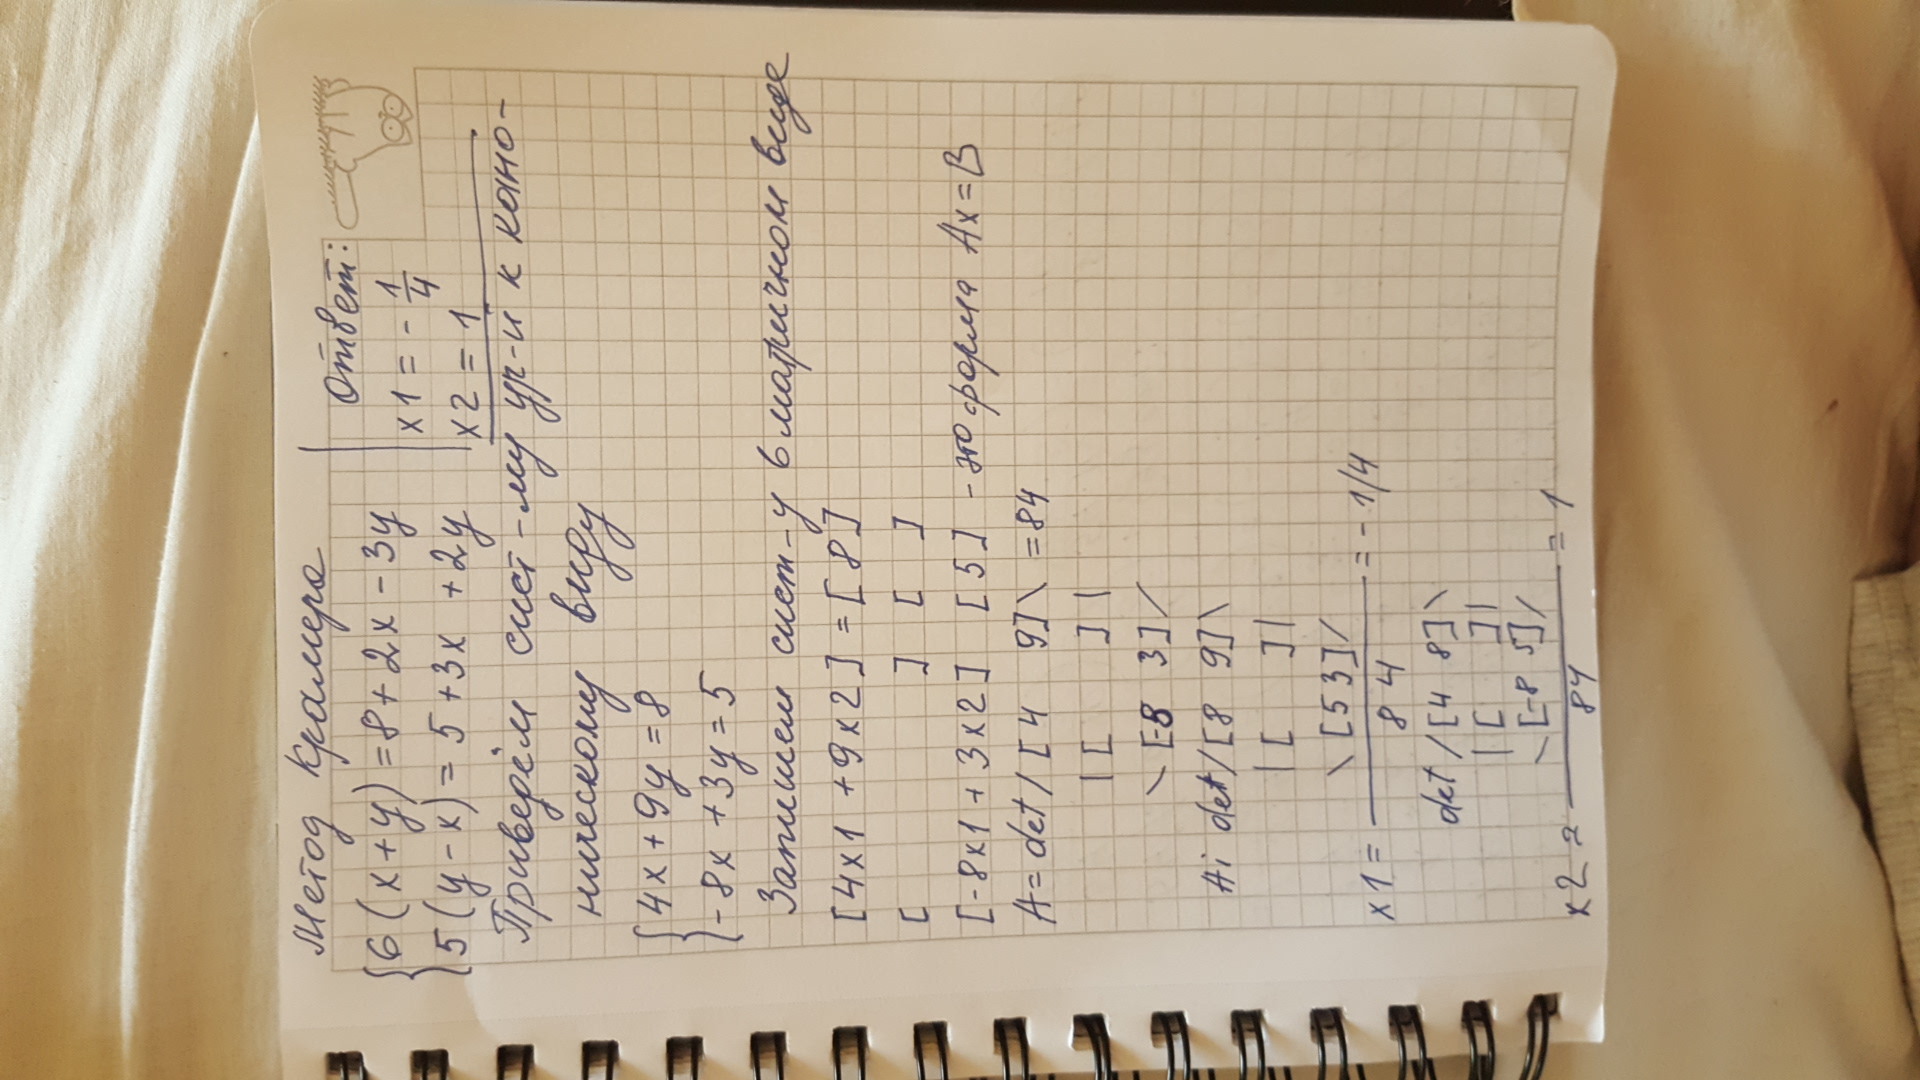 Метод Крамера
{6(x+y)=8+2x-3y
{5(y-x)=5+3x+2y
Ответ:
x1=-1/4
x2=1
Приведём сист-му ур-й к кано-
ническому виду
{4x+9y=8
{-8x+3y=5
Запишем сист-у в матричном виде
[4x1+9x2]=[8]
[ ] [ ]
[-8x1+3x2] [5] - это форма Ax=B
A=det/[4 9]\=84
|[ ]|
\[-8 3]/
Ai det/[8 9]\
|[ ]|
\[5 3]/
x1= ――― =-1/4
84
det/[4 8]\
|[ ]|
\[-8 5]/
x2= ――― =1
84